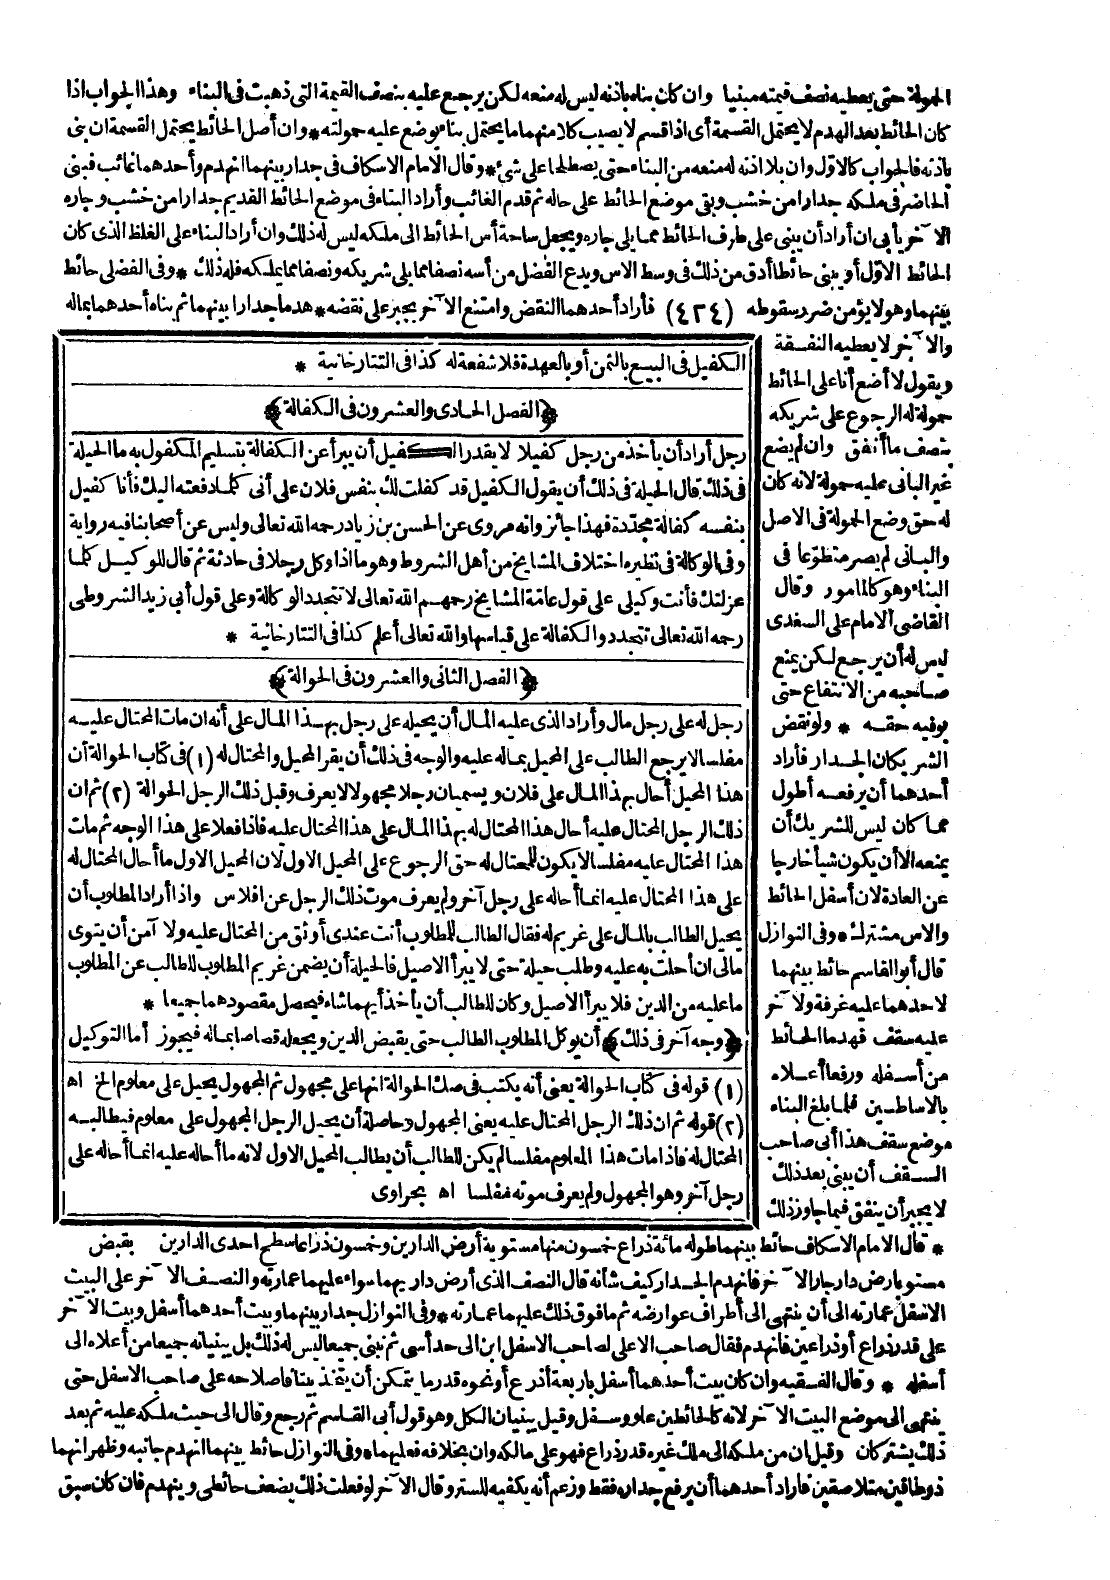 الحمولة حتى يعطيه نصف قيمته مبنيا وان كان بناه باذنه ليس له منعه لكن يرجع عليه بنصف القيمة التى ذهبت فى البناء وهذا الجواب اذا
كان الحائط بعد الهدم لا يحتمل القسمة أى اذا قسم لا يصيب كلا منهما ما يحتمل بناء يوضع عليه حمولته * وان أصل الحائط يحتمل القسمة ان بنى
باذنه فالجواب كالاول وان بلا اذنه له منعه من البناء حتى يصطلحا على شئ * وقال الامام الاسكاف فى جدار بينهما انهدم وأحدهما غائب فبنى
الحاضر فى ملكه جدارا من خشب وبقى موضع الحائط على حاله ثم قدم الغائب وأراد البناء فى موضع الحائط القديم جدارا من خشب وجاره
الآخر يأبى ان أراد أن يبنى على طرف الحائط مما يلى جاره ويجعل ساحة أس الحائط الى ملكه ليس له ذلك وان أراد البناء على الغلظ الذى كان
الحائط الاول أو يبنى حائطا أدق من ذلك فى وسط الاس ويدع الفضل من أسه نصفا مما يلى شريكه ونصفا مما يملكه فله ذلك * وفى الفضلى حائط
بينهما وهو لا يؤمن ضرر سقوطه (٤٢٤) فأراد أحدهما النقض وامتنع الآخر يجبر على نقضه * هدما جدارا بينهما ثم بناه أحدهما بماله
والآخر لا يعطيه النفقة
ويقول لا أضع أنا على الحائط
حمولة له الرجوع على شريكه
بنصف ما أنفق وان لم يضع
غير البانى عليه حمولة لانه كان
له حق وضع الحمولة فى الاصل
والبانى لم يصر متطوعا فى
البناء وهو كالمامور وقال
القاضى الامام على السغدى
ليس له أن يرجع لكن يمنع
صاحبه من الانتفاع حتى
يوفيه حقه * ولو نقض
الشريكان الجدار فأراد
أحدهما أن يرفعه أطول
مما كان ليس للشريك أن
يمنعه الا أن يكون شيأ خارجا
عن العادة لان أسفل الحائط
والاس مشترك * وفى النوازل
قال أبو القاسم حائط بينهما
لاحدهما عليه غرفة ولآخر
عليه سقف فهدما الحائط
من أسفله ورفعا أعلاه
بالاساطين فلما بلغ البناء
موضع سقف هذا أبى صاحب
السقف أن يبنى بعد ذلك
لا يجبر أن ينفق فيما جاوز ذلك
الكفيل فى البيع بالثمن أو بالعهدة فلا شفعة له كذا فى التتارخانية *
﴿الفصل الحادى والعشرون فى الكفالة﴾
رجل أراد أن يأخذ من رجل كفيلا لا يقدر الكفيل أن يبرأ عن الكفالة بتسليم المكفول به ما الحيلة
فى ذلك قال الحيلة فى ذلك أن يقول الكفيل قد كفلت لك بنفس فلان على أنى كلما دفعته اليك فأنا كفيل
بنفسه كفالة مجددة فهذا جائز وانه مروى عن الحسن بن زياد رحمه الله تعالى وليس عن أصحابنا فيه رواية
وفى الوكالة فى نظيره اختلاف المشايخ من أهل الشروط وهو ما اذا وكل رجلا فى حادثة ثم قال للوكيل كلما
عزلتك فأنت وكيلى على قول عامة المشايخ رحمهم الله تعالى لا تتجدد الوكالة وعلى قول أبى زيد الشروطى
رحمه الله تعالى تتجدد والكفالة على قياسها والله تعالى أعلم كذا فى التتارخانية *
﴿الفصل الثانى والعشرون فى الحوالة﴾
رجل له على رجل مال وأراد الذى عليه المال أن يحيله على رجل بهذا المال على أنه ان مات المحتال عليه
مفلسا لا يرجع الطالب على المحيل بماله عليه والوجه فى ذلك أن يقر المحيل والمحتال له (١) فى كتاب الحوالة أن
هذا المحيل أحال بهذا المال على فلان ويسميان رجلا مجهولا لا يعرف وقبل ذلك الرجل الحوالة (٢) ثم ان
ذلك الرجل المحتال عليه أحال هذا المحتال له بهذا المال على هذا المحتال عليه فاذا فعلا على هذا الوجه ثم مات
هذا المحتال عليه مفلسا لا يكون للمحتال له حق الرجوع على المحيل الاول لان المحيل الاول ما أحال المحتال له
على هذا المحتال عليه انما أحاله على رجل آخر ولم يعرف موت ذلك الرجل عن افلاس واذا أراد المطلوب أن
يحيل الطالب بالمال على غريم له فقال الطالب للمطلوب أنت عندى أوثق من المحتال عليه ولا آمن أن يتوى
مالى ان أحلت به عليه وطلب حيلة حتى لا يبرأ الاصيل فالحيلة أن يضمن غريم المطلوب للطالب عن المطلوب
ما عليه من الدين فلا يبرأ الاصيل وكان للطالب أن يأخذ أيهما شاء فيحصل مقصودهما جميعا *
﴿وجه آخر فى ذلك﴾ أن يوكل المطلوب الطالب حتى يقبض الدين ويجعله قصاصا بماله فيجوز أما التوكيل
(١) قوله فى كتاب الحوالة يعنى أنه يكتب فى صك الحوالة انها على مجهول ثم المجهول يحيل على معلوم الخ اه
(٢) قوله ثم ان ذلك الرجل المحتال عليه يعنى المجهول وحاصله أن يحيل الرجل المجهول على معلوم فيطالبه
المحتال له فاذا مات هذا المعلوم مفلسا لم يكن للطالب أن يطالب المحيل الاول لانه ما أحاله عليه انما أحاله على
رجل آخر وهو المجهول ولم يعرف موته مفلسا اه بحراوى
* قال الامام الاسكاف حائط بينهما طوله مائة ذراع خمسون منها مستوية أرض الدارين وخمسون ذراعا سطح احدى الدارين يقبض
مستو بارض دار جار الآخر فانهدم الجدار كيف شأنه قال النصف الذى أرض داريهما سواء عليهما عمارته والنصف الآخر على البيت
الاسفل عمارته الى أن ينتهى الى أطراف عوارضه ثم ما فوق ذلك عليهما عمارته * وفى النوازل جدار بينهما وبيت أحدهما أسفل وبيت الآخر
على قدر ذراع أو ذراعين فانهدم فقال صاحب الاعلى لصاحب الاسفل ابن الى حد أسى ثم نبنى جميعا ليس له ذلك بل يبنيانه جميعا من أعلاه الى
أسفله * وقال الفقيه وان كان بيت أحدهما أسفل باربعة أذرع أو نحوه قدر ما يتمكن أن يتخذ بيتا فاصلاحه على صاحب الاسفل حتى
ينتهى الى موضع البيت الآخر لانه كالحائطين علو وسفل وقيل يبنيان الكل وهو قول أبى القاسم ثم رجع وقال الى حيث ملكه عليه ثم بعد
ذلك يشتركان وقيل ان من ملكه الى ملك غيره قدر ذراع فهو على مالكه وان بخلافه فعليهما * وفى النوازل حائط بينهما انهدم جانبه وظهر انهما
ذو طاقين متلاصقين فاراد أحدهما أن يرفع جداره فقط وزعم أنه يكفيه للستر وقال الآخر لو فعلت ذلك يضعف حائطى وينهدم فان كان سبق